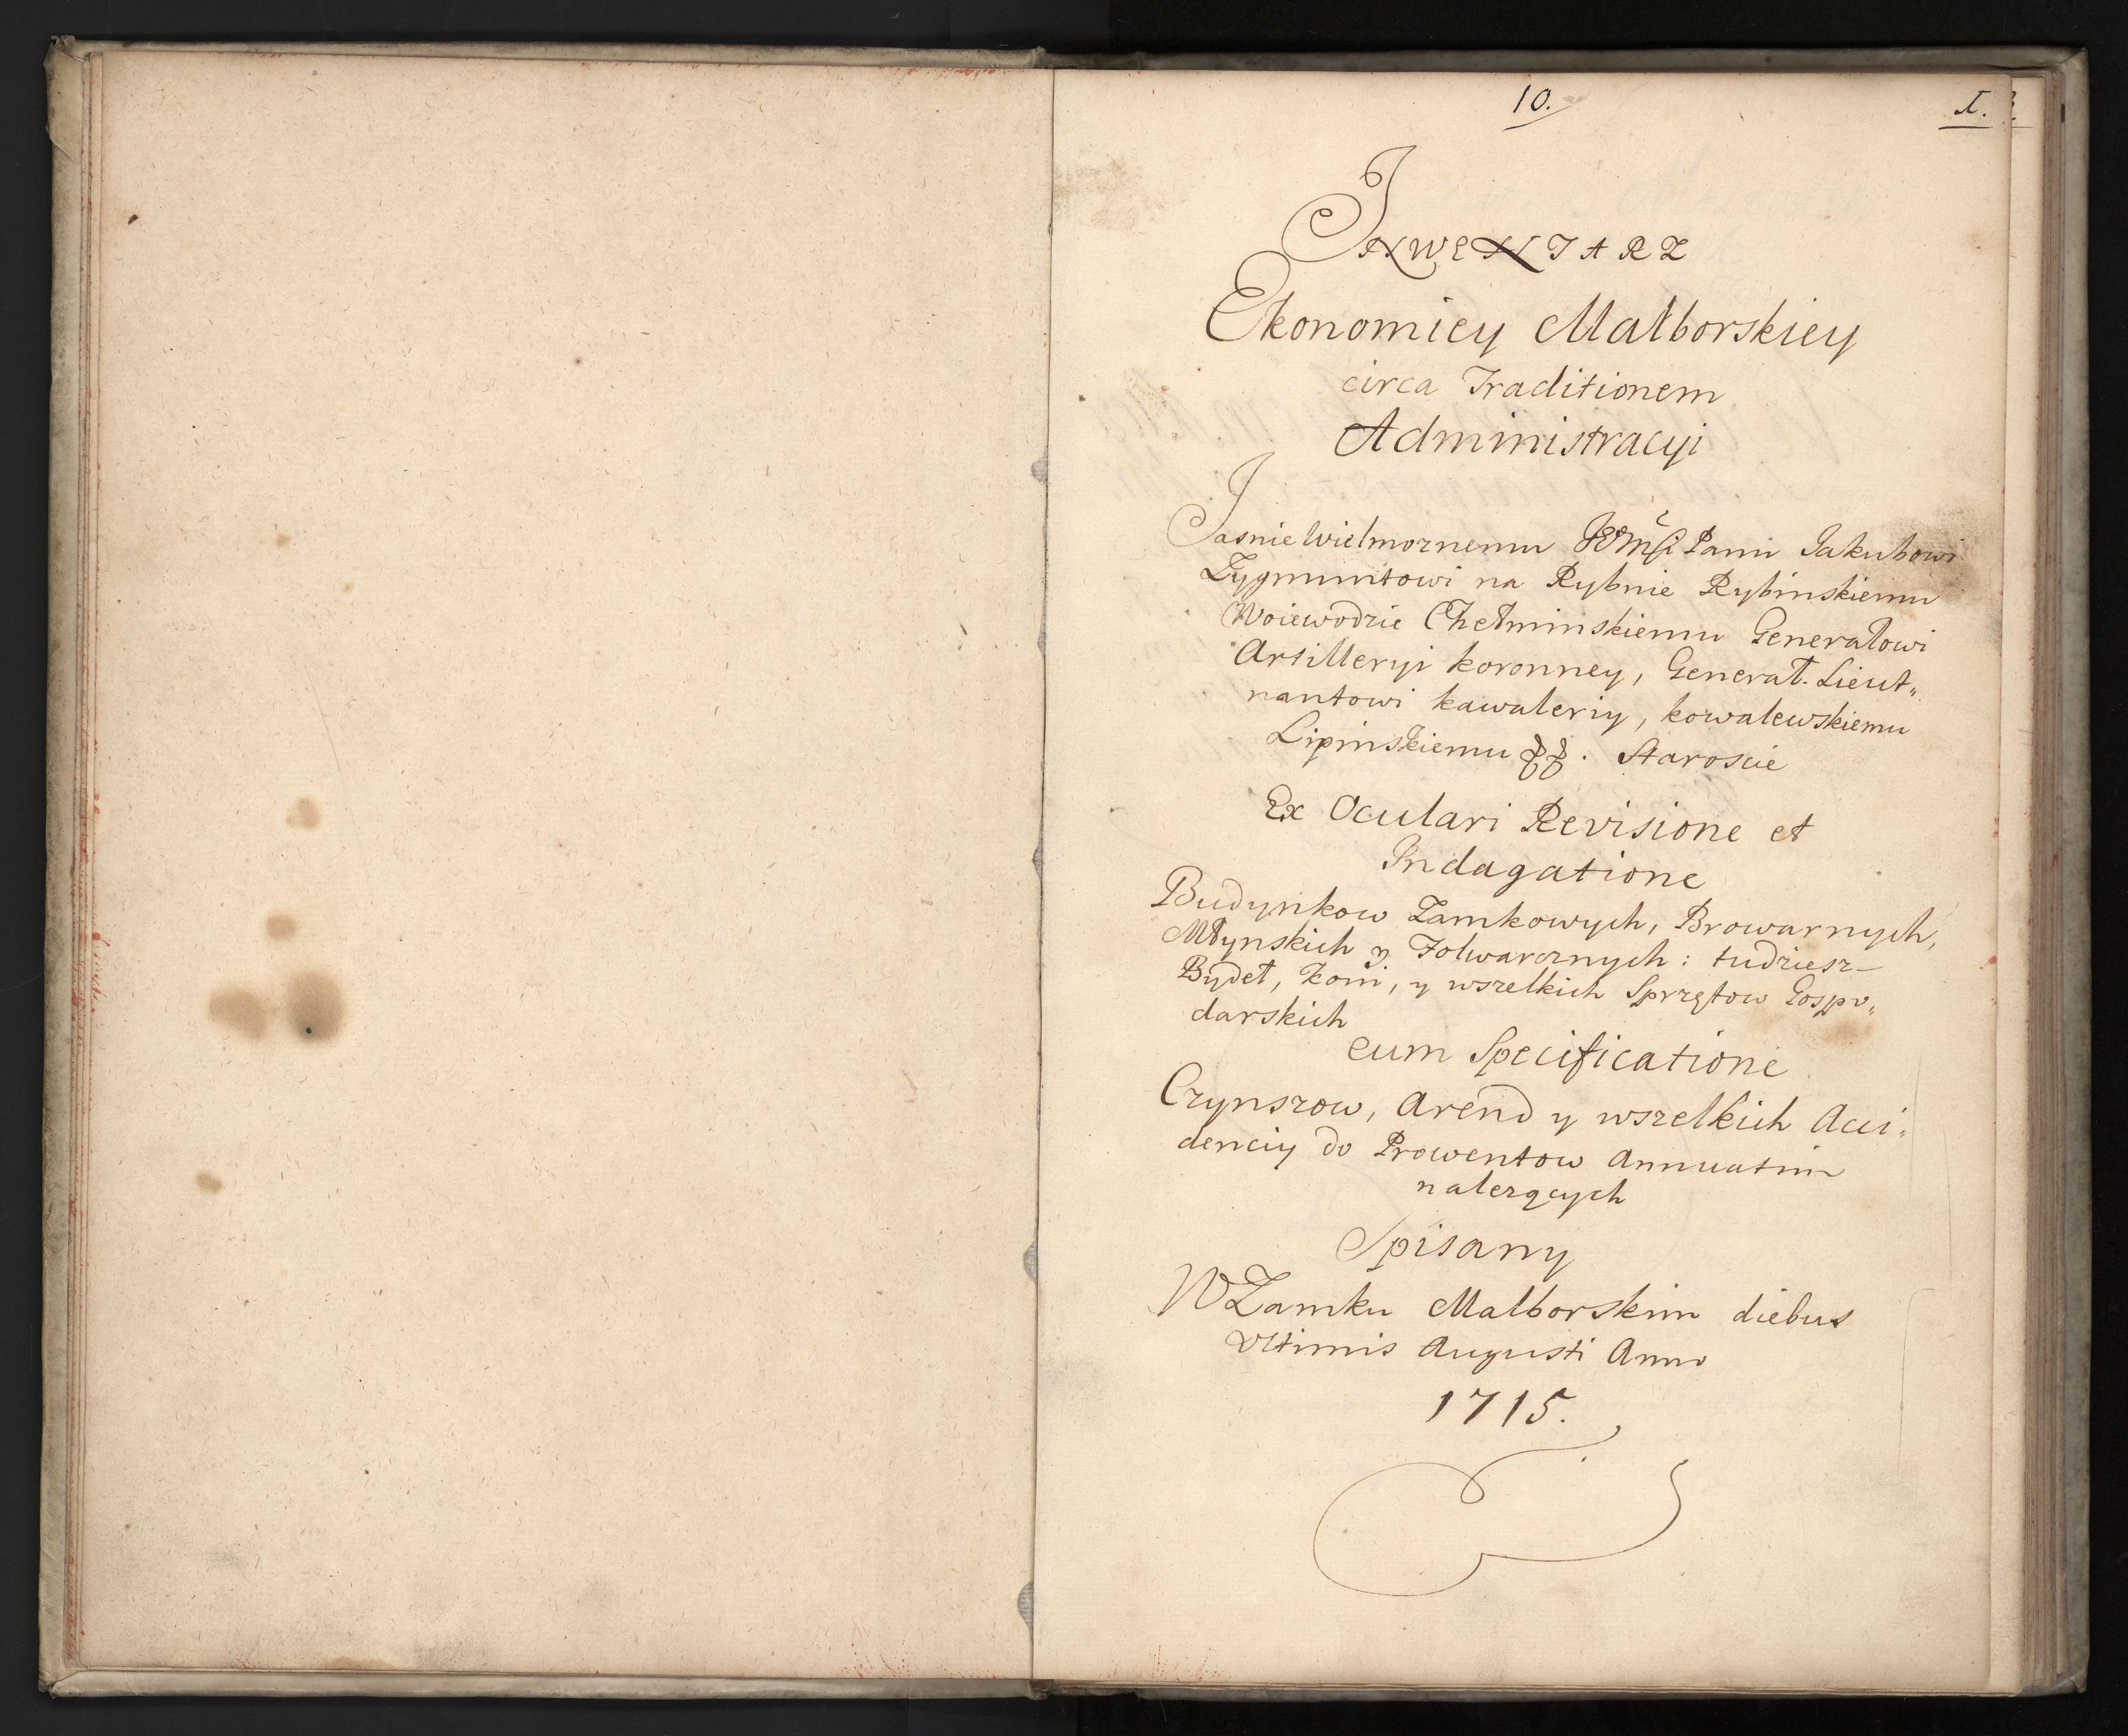 10.
I.
INWENTARZ
Ekonomiey Malborskiey
circa Traditionem
Administracyi
Jasnie Wielmoznemu Panu Jakubowi
Zygmuntowi na Rybnie Rybinskiemu
Woiewodzie Chełminskiemu Generałowi
Artilleryi koronney, Generał. Lieut„
nantowi kawaleriy, kowalewskiemu
Lipinskiemu &&. Staroscie
Ex Oculari Revisione et
Indagatione
Budynkow Zamkowych, Browarnych,
Młynskich y Folwarcznych: tudziesz
Bydeł, koni, y wszelkich Sprzętow Gospo„
darskich
cum Specificatione
Czynszow, Arend y wszelkich Acci„
denciy do Prowentow annuatim
nalezących
Spisany
W Zamku Malborskim diebus
Vltimis Augusti Anno
1715.